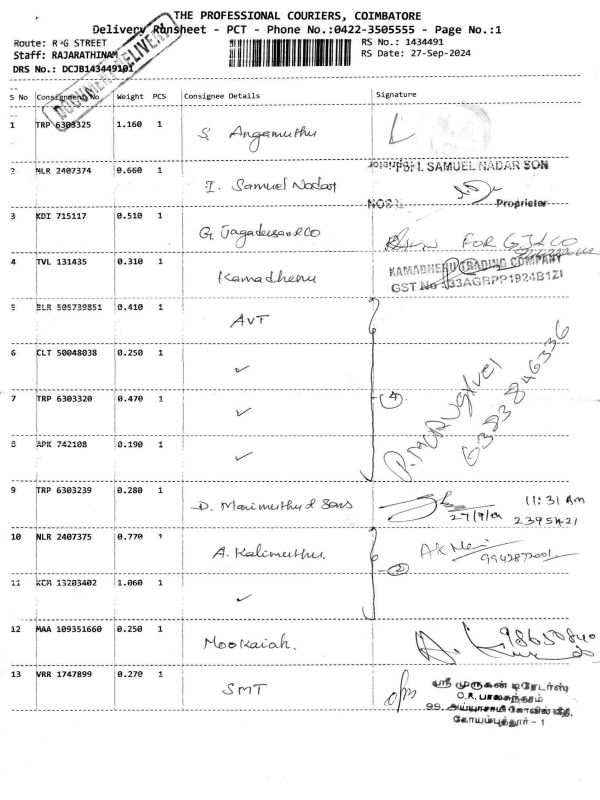 THE PROFESSIONAL COURIERS, COIMBATORE
Delivery Runsheet - PCT - Phone No.:0422-3505555 - Page No.:1
Route: R G STREET
RS No.: 1434491
Staff: RAJARATHINAM
RS Date: 27-Sep-2024
DRS No.: DCJB143449101
S No Consignment No Weight PCS Consignee Details Signature
1 TRP 6303325 1.160 1 S. Angamuthu
2 NLR 2407374 0.660 1 I. Samuel Nadar SAMUEL NADAR SON
Proprietor
3 KDI 715117 0.510 1 G. Jagadeesan & CO FOR GJ & CO
4 TVL 131435 0.310 1 Kamadhenu KAMADHENU TRADING COMPANY
GST No :33AGBPP1924B1ZI
5 BLR 505739851 0.410 1 AVT
6 CLT 50048038 0.250 1 ✓
7 TRP 6303320 0.470 1 ✓ 4
8 APK 742108 0.190 1 ✓
P. Murugavel
6383846336
9 TRP 6303239 0.280 1 D. Marimuthu & Sons 11:31 Am
27/9/24 2395421
10 NLR 2407375 0.770 1 A. Kalimuthu. AK Mani
2 9942872001
11 KCM 13203402 1.060 1 ✓
12 MAA 109351660 0.250 1 Mookaiah.
13 VRR 1747899 0.270 1 SMT
ஸ்ரீ முருகன் டிரேடர்ஸ்
O.R. பாலசுந்தரம்
99, அய்யாசாமி கோவில் வீதி,
கோயம்புத்தூர் - 1